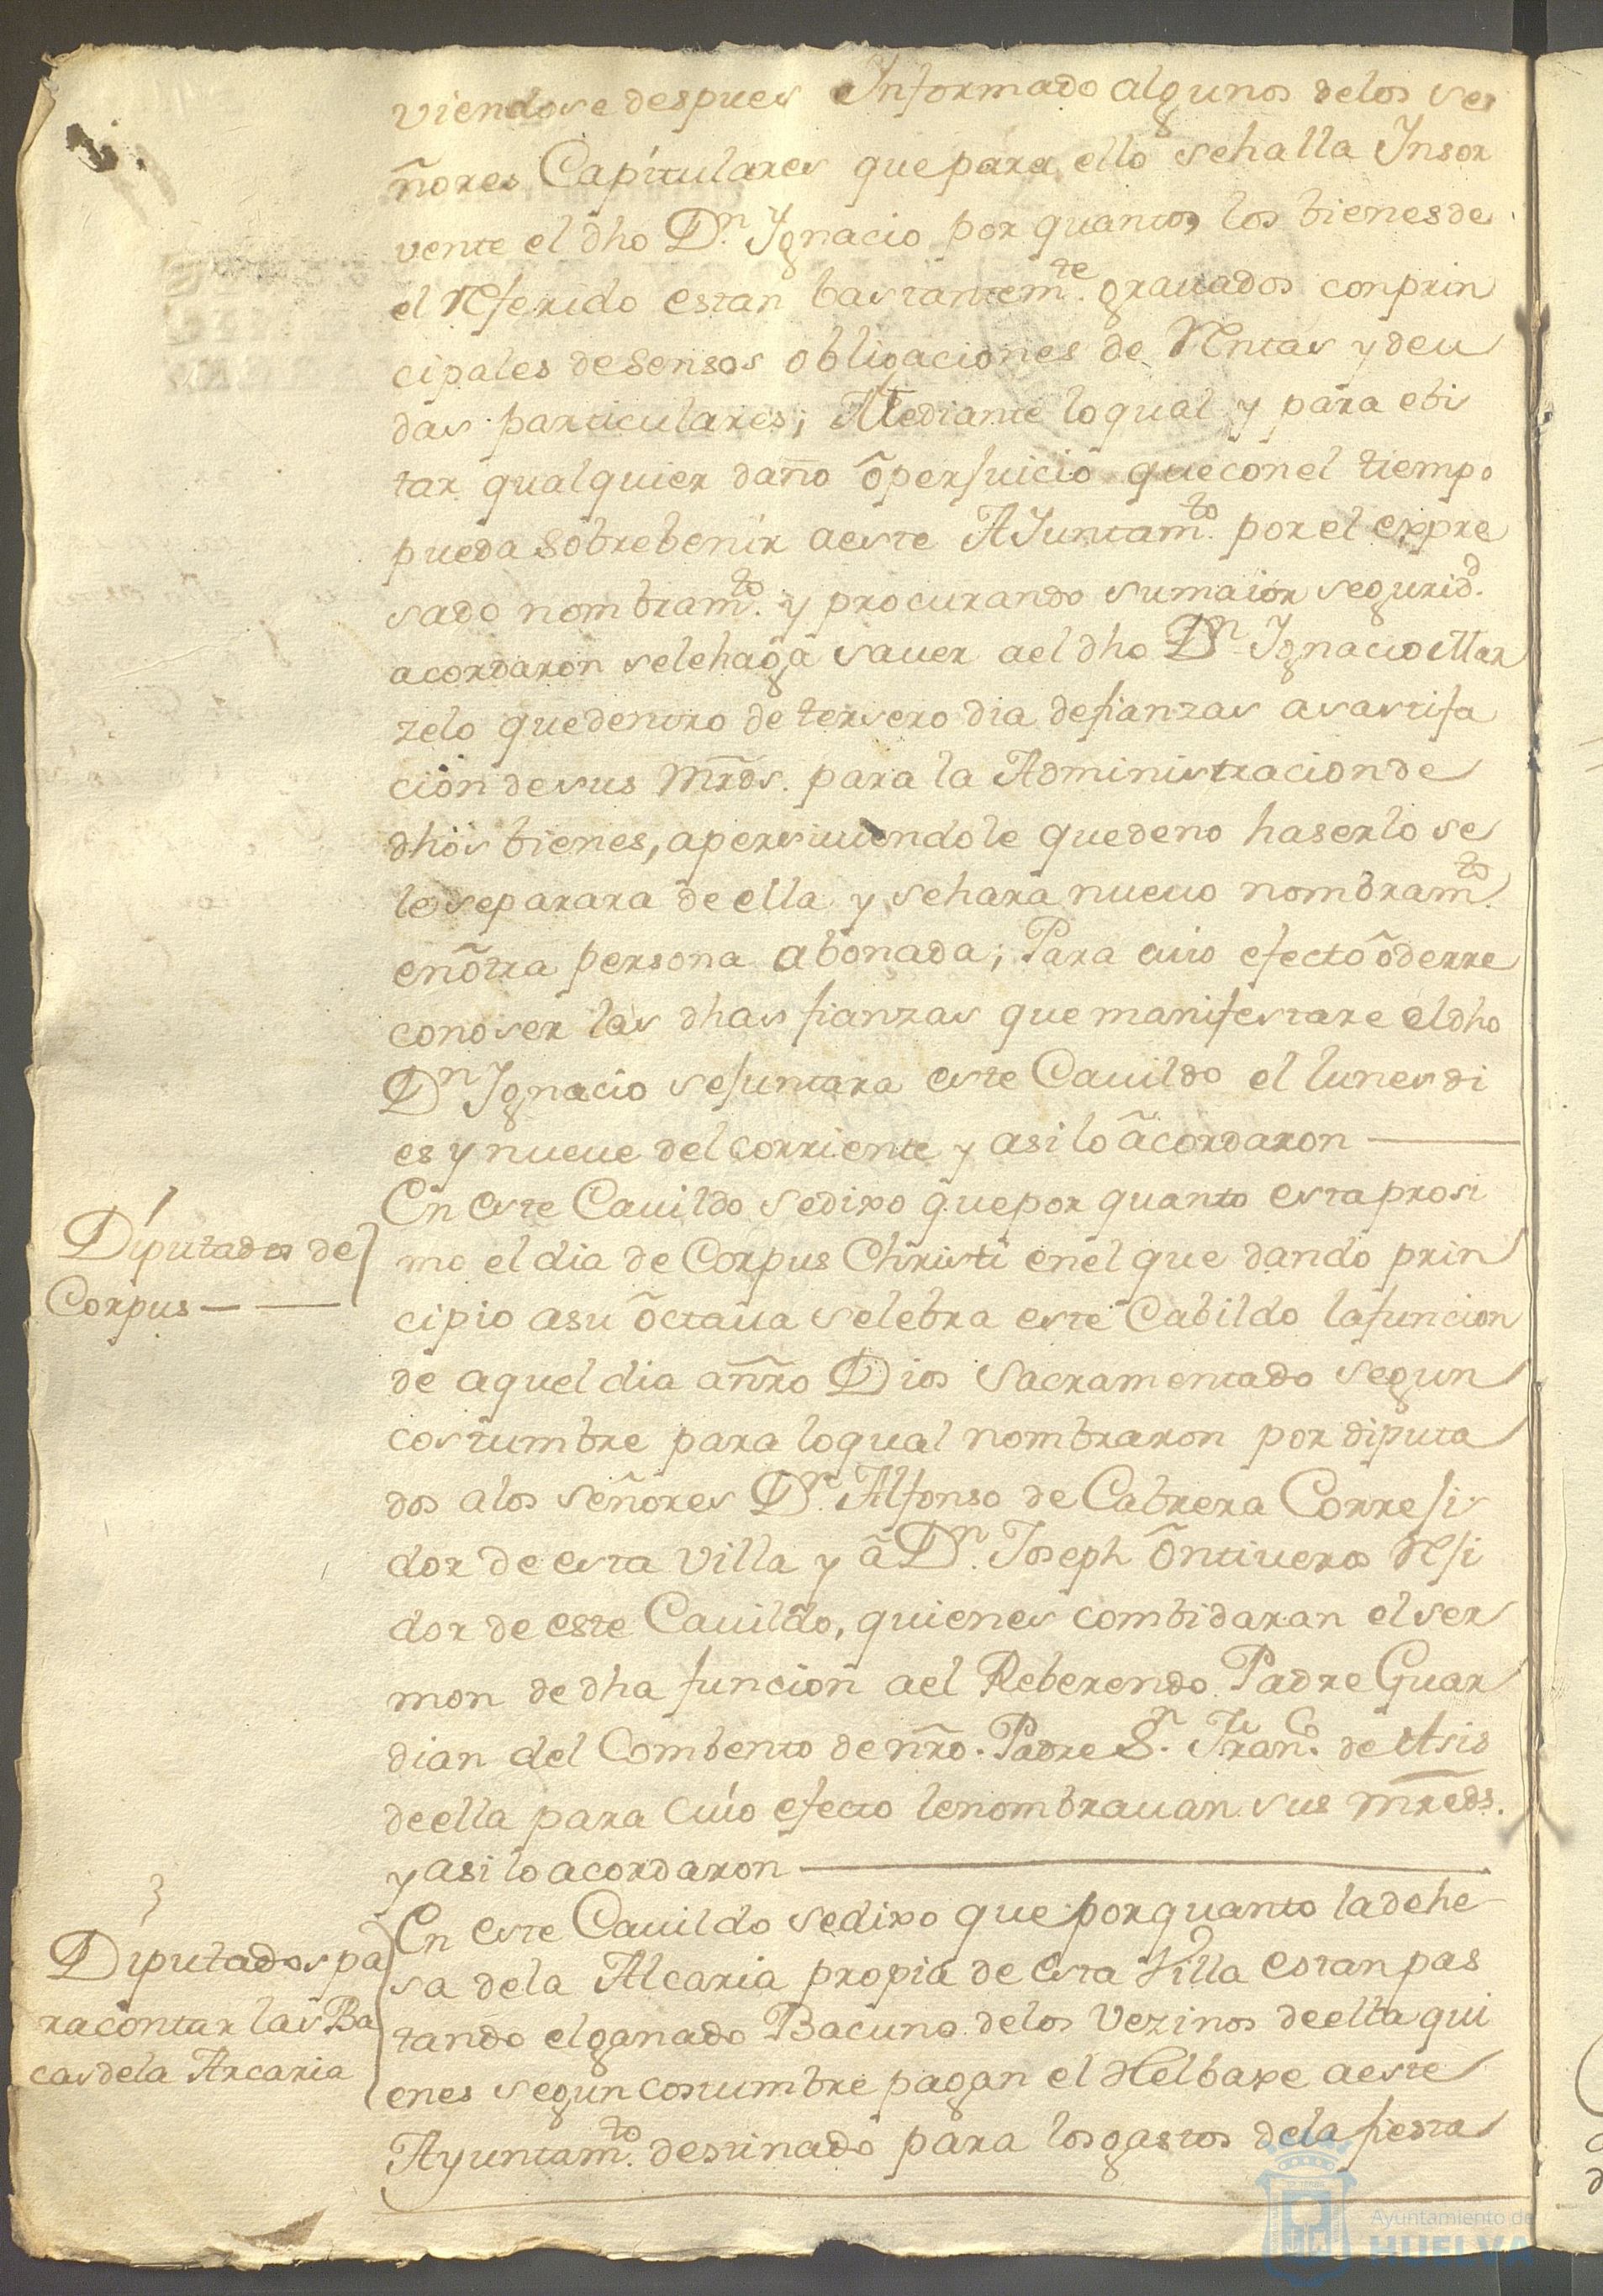 viendose despues Informado algunos delos se
ñores Capitulares que para ello sehalla Insor
vente el dho Dn. Ygnacio por quantos los bienes de
el Referido estan bastantemte. grauados con prin
cipales desensos obligaciones de Rentas y deu
das particulares; Mediante lo qual y para ebi
tar qualquier daño õ perjuicio que con el tiempo
pueda sobrebenir aeste AJuntamto. por el expre
sado nombramto. y procurando su maior seguridd.
acordaron selehaga sauer ael dho Dn. Ygnacio Mar
zelo que dentro de tersero dia de fianzas asastifa
cion desus Mrds. para la Administracion de
dhos bienes, apersiuiendole que deno haserlo se
le separara de ella y sehara nueuo nombramto.
en õtra persona abonada; Para cuio efecto õ de rre
conoser las dhas fianzas que manifestare el dho
Dn Ygnacio sejuntara este Cauildo el lunes di
es y nueue del corriente y asi lo ãcordaron
Diputados de
Corpus
En este Cauildo sedixo que por quanto esta prosi
mo el dia de Corpus Christi en el que dando prin
cipio asu õctaua selebra este Cabildo la funcion
de aquel dia a ñro Dios Sacramentado segun
costumbre para lo qual nombraron por diputa
dos alos señores Dn. Alfonso de Cabrera Correji
dor de esta Villa y ã Dn. Joseph õntiueros Reji
dor de este Cauildo, quienes combidaran el ser
mon de dha funcion ael Reberendo Padre Guar
dian del Combento de nro. Padre Sn. Franco. de Asis
de ella para cuio efecto lenombrauan sus mreds.
y asi lo acordaron
3
Diputados pa
ra contar las Ba
cas de la Arcaria
En este Cauildo sedixo que por quanto la dehe
sa dela Alcaria propia de esta Villa estan pas
tando el ganado Bacuno delos Vezinos de ella qui
enes segun costumbre pagan el Helbaxe aeste
Ayuntamto. destinado para los gastos dela fiesta
Ayuntamiento de
HUELVA